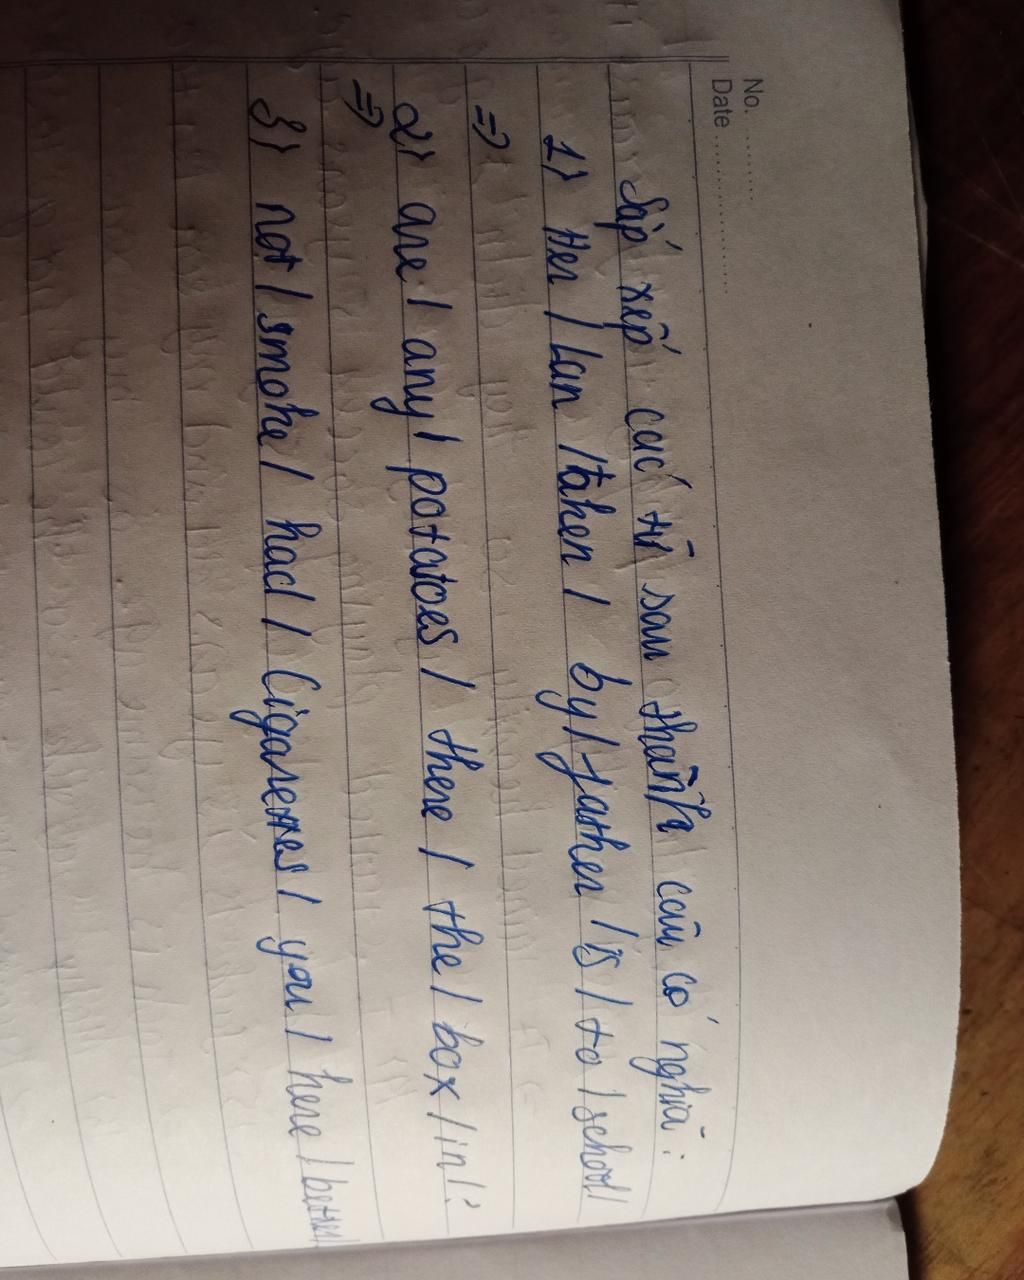 No. ............
Date ........................
Sắp xếp các từ sau thành câu có nghĩa :
1) Her / Lan / taken / by / father / is / to / school /
=>
2) are / any / potatoes / there / the / box / in / ?
=>
3) not / smoke / had / Cigarettes / you / here / better /